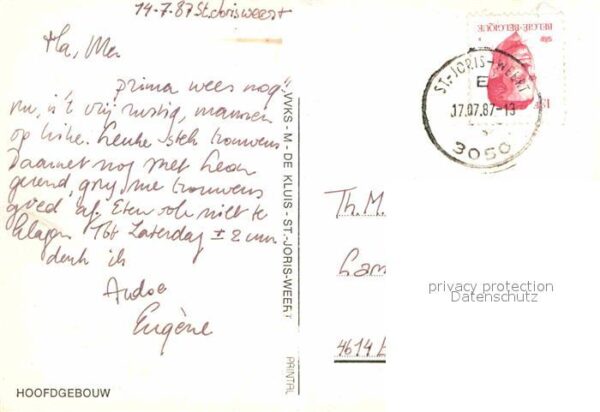 14-7-87 St. Joris weert
Ha, Ma
prima wees nog
nu, is 't vrij rustig, mannen
op hike. Leuke stek trouwens
Daarnet nog met Leon
gerend, ging me trouwens
goed af. Eten ook niet te
klagen. Tot Zaterdag ± 2 uur
denk ik
Eugène
VVKS - M - DE KLUIS - ST.-JORIS-WEERT
PRINTAL
HOOFDGEBOUW
BELGIE-BELGIQUE
ST.-JORIS-WEERT
E
17.07.87-13
3050
Th. M.
4614
privacy protection
Datenschutz